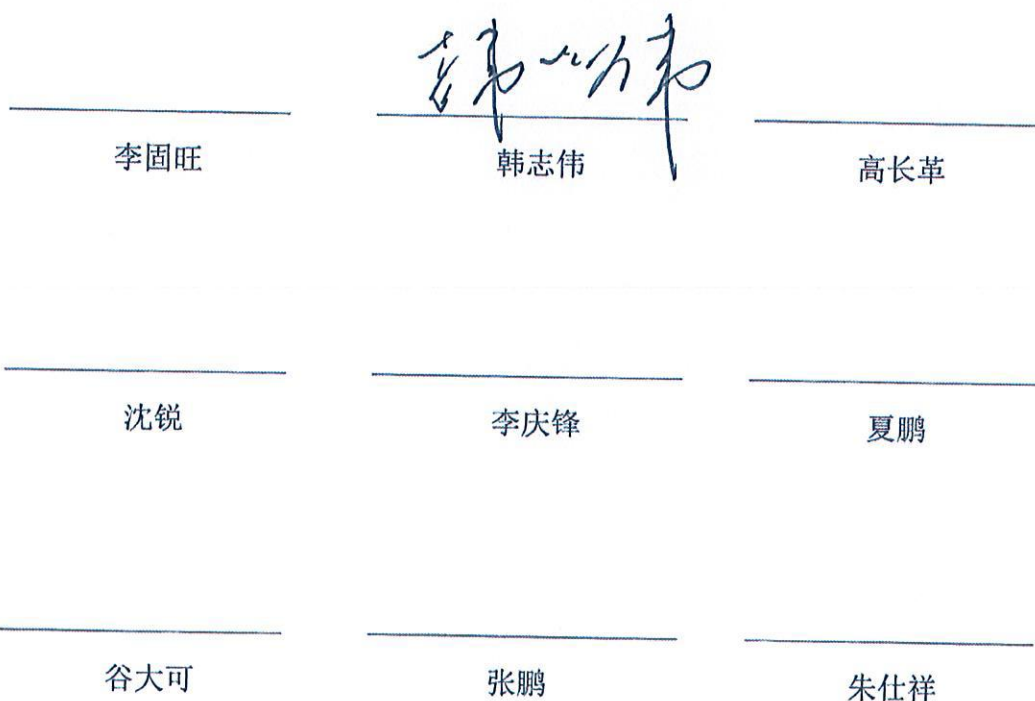 韩志伟
李固旺 韩志伟 高长革
沈锐 李庆锋 夏鹏
谷大可 张鹏 朱仕祥